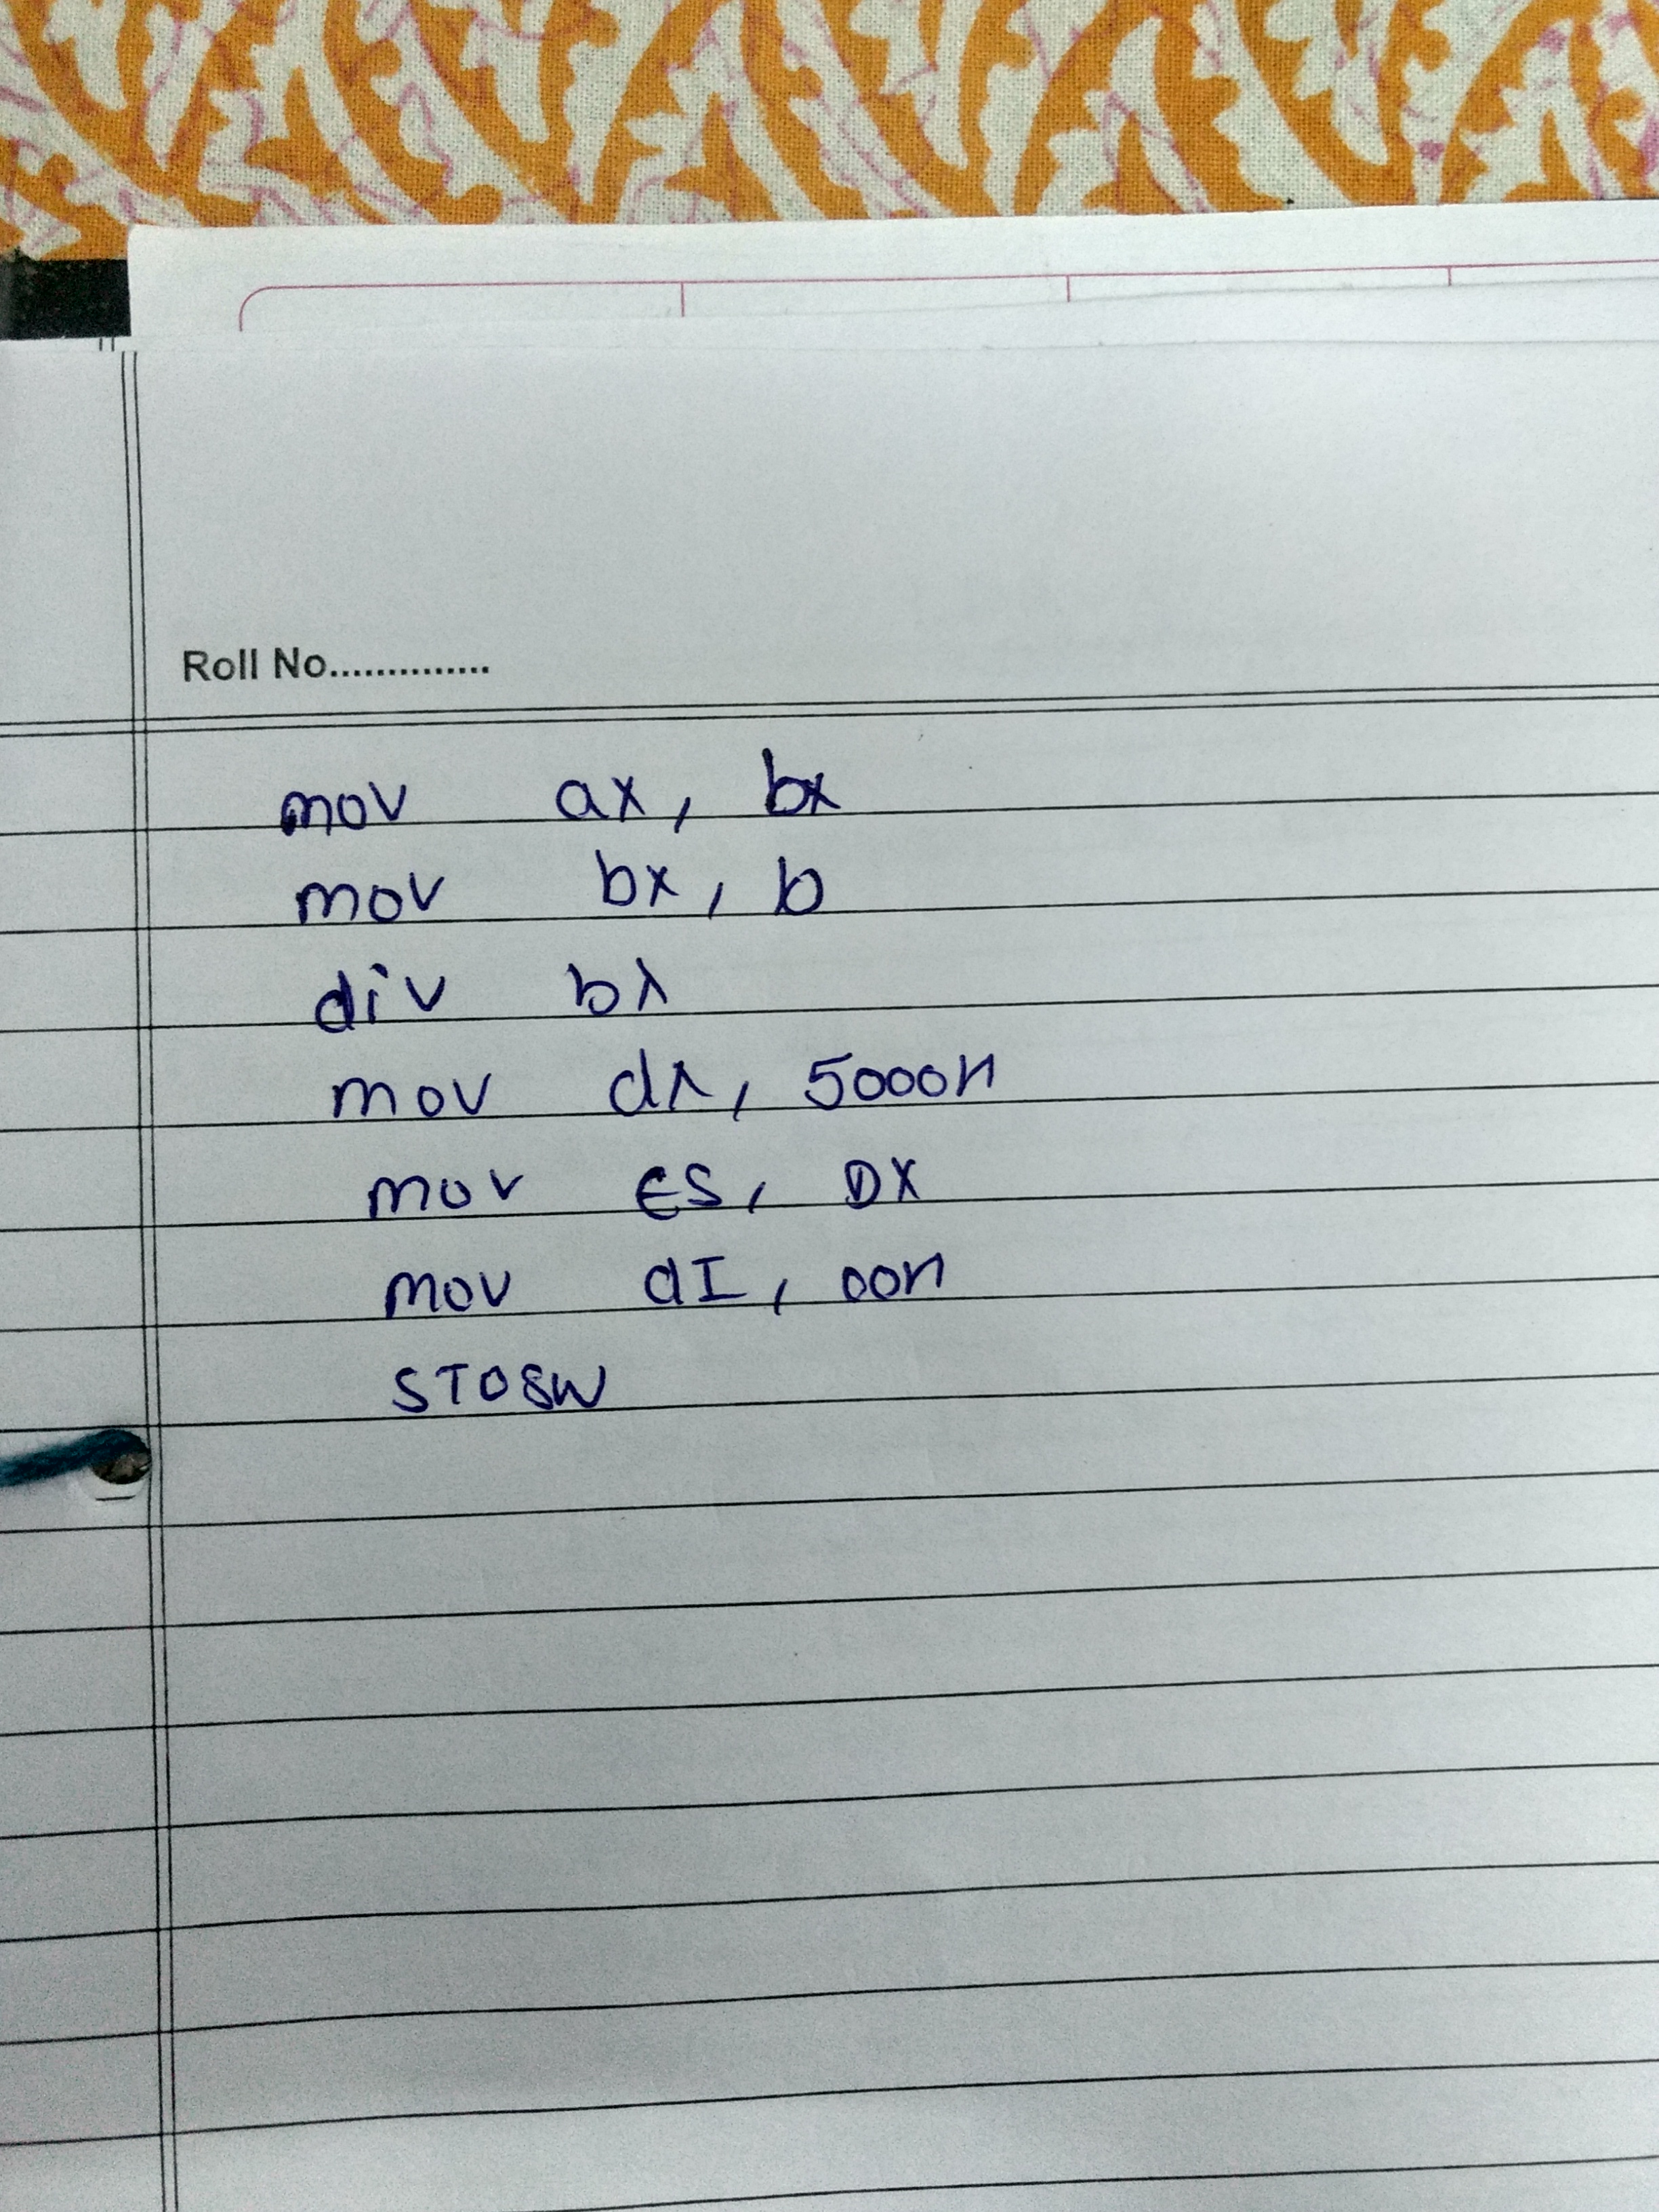 Roll No..............
mov ax, bx
mov bx, b
div bx
mov dx, 5000H
mov ES, DX
mov dI, 00H
STOSW